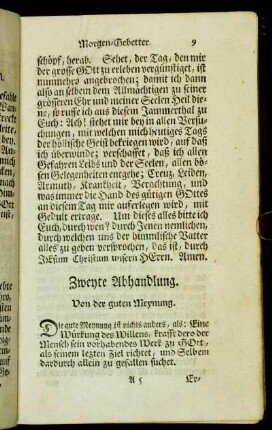 Morgen-Gebetter. 9
schöpf, herab. Sehet, der Tag, den mir
der grosse GOtt zu erleben vergünstiget, ist
nunmehro angebrochen; damit ich dann
also an selbem dem Allmächtigen zu seiner
grösseren Ehr und meiner Seelen Heil die-
ne, so ruffe ich aus diesem Jammerthal zu
Euch: Ach! stehet mir bey in allen Versu-
chungen, mit welchen mich heutiges Tags
der höllische Geist bekriegen wird, auf daß
ich überwinde; verschaffet, daß ich allen
Gefahren Leibs und der Seelen, allen bö-
sen Gelegenheiten entgehe; Creuz, Leiden,
Armuth, Krankheit, Verachtung, und
was immer die Hand des gütigen GOttes
an diesem Tag mir auferlegen wird, mit
Gedult ertrage. Um dieses alles bitte ich
Euch, durch wen? durch Jenen nemlichen,
durch welchen uns der himmlische Vatter
alles zu geben versprochen, das ist, durch
JEsum Christum unsern HErrn. Amen.
Zweyte Abhandlung.
Von der guten Meynung.
Die gute Meynung ist nichts anders, als: Eine
Würkung des Willens, krafft dero der
Mensch sein vorhabendes Werk zu GOtt,
als seinem lezten Ziel richtet, und Selbem
dardurch allein zu gefallen suchet.
A 5 Er-